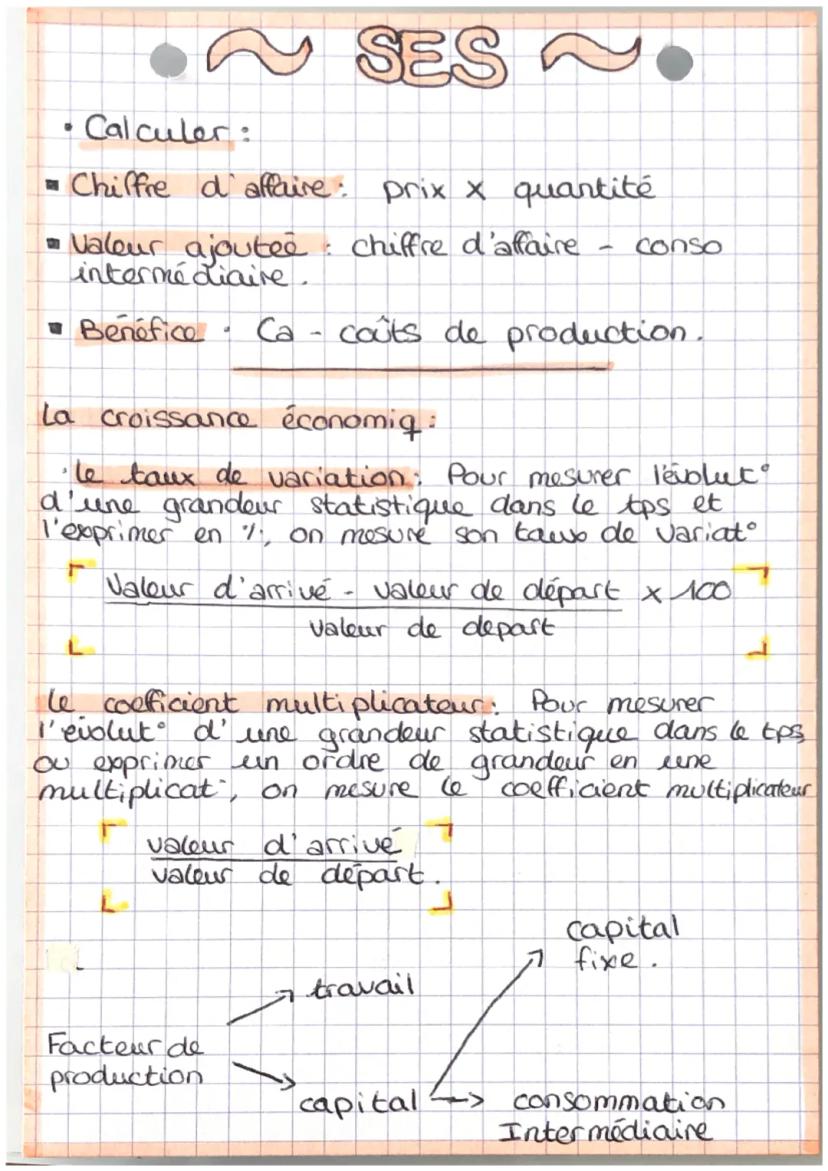 ~ SES ~
• Calculer :
▪ Chiffre d'affaire : prix x quantité
▪ Valeur ajouteé : chiffre d'affaire - conso
intermédiaire.
▪ Bénéfice : Ca - coûts de production.
La croissance économiq :
• Le taux de variation : Pour mesurer l'évolut°
d'une grandeur statistique dans le tps et
l'exprimer en %, on mesure son taux de variat°
Valeur d'arrivé - valeur de départ x 100
valeur de depart
Le coefficient multiplicateur : Pour mesurer
l'évolut° d'une grandeur statistique dans le tps
ou exprimer un ordre de grandeur en une
multiplicat°, on mesure le coefficient multiplicateur
valeur d'arrivé
valeur de départ.
capital
fixe.
travail
Facteur de
production
capital → consommation
Intermédiaire